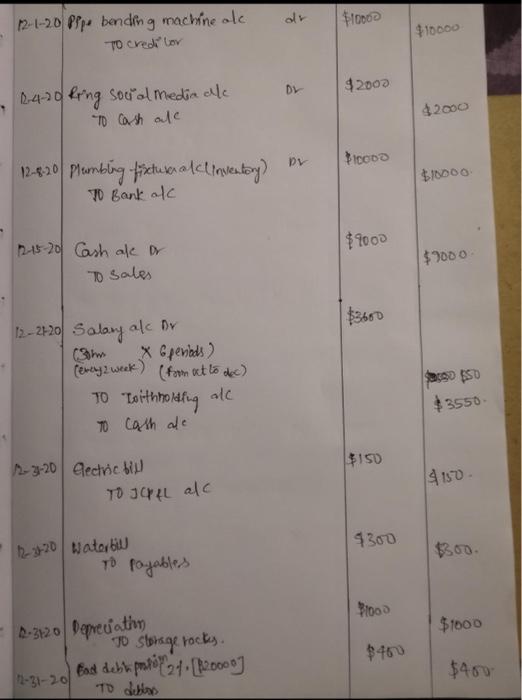 12-1-20 Pipe bending machine a/c dr $10000
TO creditor $10000
12-4-20 King social media a/c Dr $2000
TO Cash a/c $2000
12-8-20 Plumbing fixtures a/c (Inventory) Dr $10000
TO Bank a/c $10000
12-15-20 Cash a/c Dr $9000
TO Sales $9000
12-21-20 Salary a/c Dr $3600
X 6 periods)
(every 2 week) (form oct to dec)
TO withholding a/c $50
TO Cash a/c $3550
12-31-20 Electric bill $150
TO JCP&L a/c $150
12-31-20 Water bill $300
TO Payables $300
12-31-20 Depreciation $1000
TO Storage racks. $1000
12-31-20 Bad debt [2%. [$20000] $400
TO debtors $400